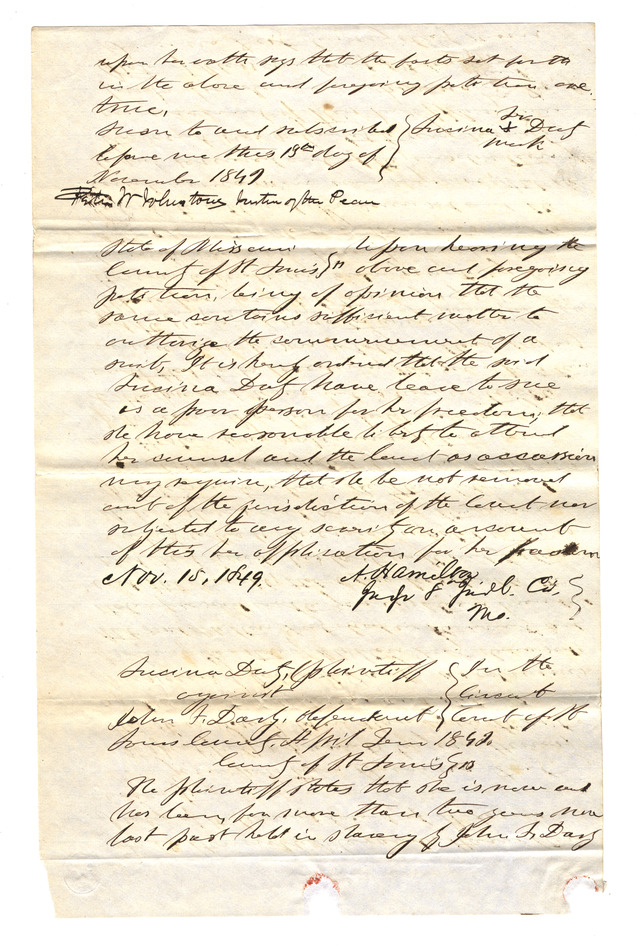 upon her oath says that the facts set forth
in the above and foregoing petition are
true.
Sworn to and subscribed } Lucina her X Darby
before me this 13th day of } mark
November 1849
W Johnstone Justice of the Peace
State of Missouri } Upon hearing the
County of St Louis } ss above and foregoing
petition, being of opinion that the
same contains sufficient matter to
authorize the commencement of a
suit, It is hereby ordered that the said
Lucina Darby have leave to sue
as a poor person for her freedom, that
she have reasonable liberty to attend
her counsel and the Court as occasion
may require, that she be not removed
out of the jurisdiction of the Court nor
subjected to any severity on account
of this her application for her freedom
Nov. 15, 1849. A. Hamilton
Judge 8 Judl. Ct,
Mo.
Lucina Darby, plaintiff } In the
against } Circuit
John F. Darby, defendant } Court of St
Louis County, April Term 1849
County of St Louis ss
The plaintiff states that she is now and
has been, for more than two years now
last past held in slavery by John F. Darby